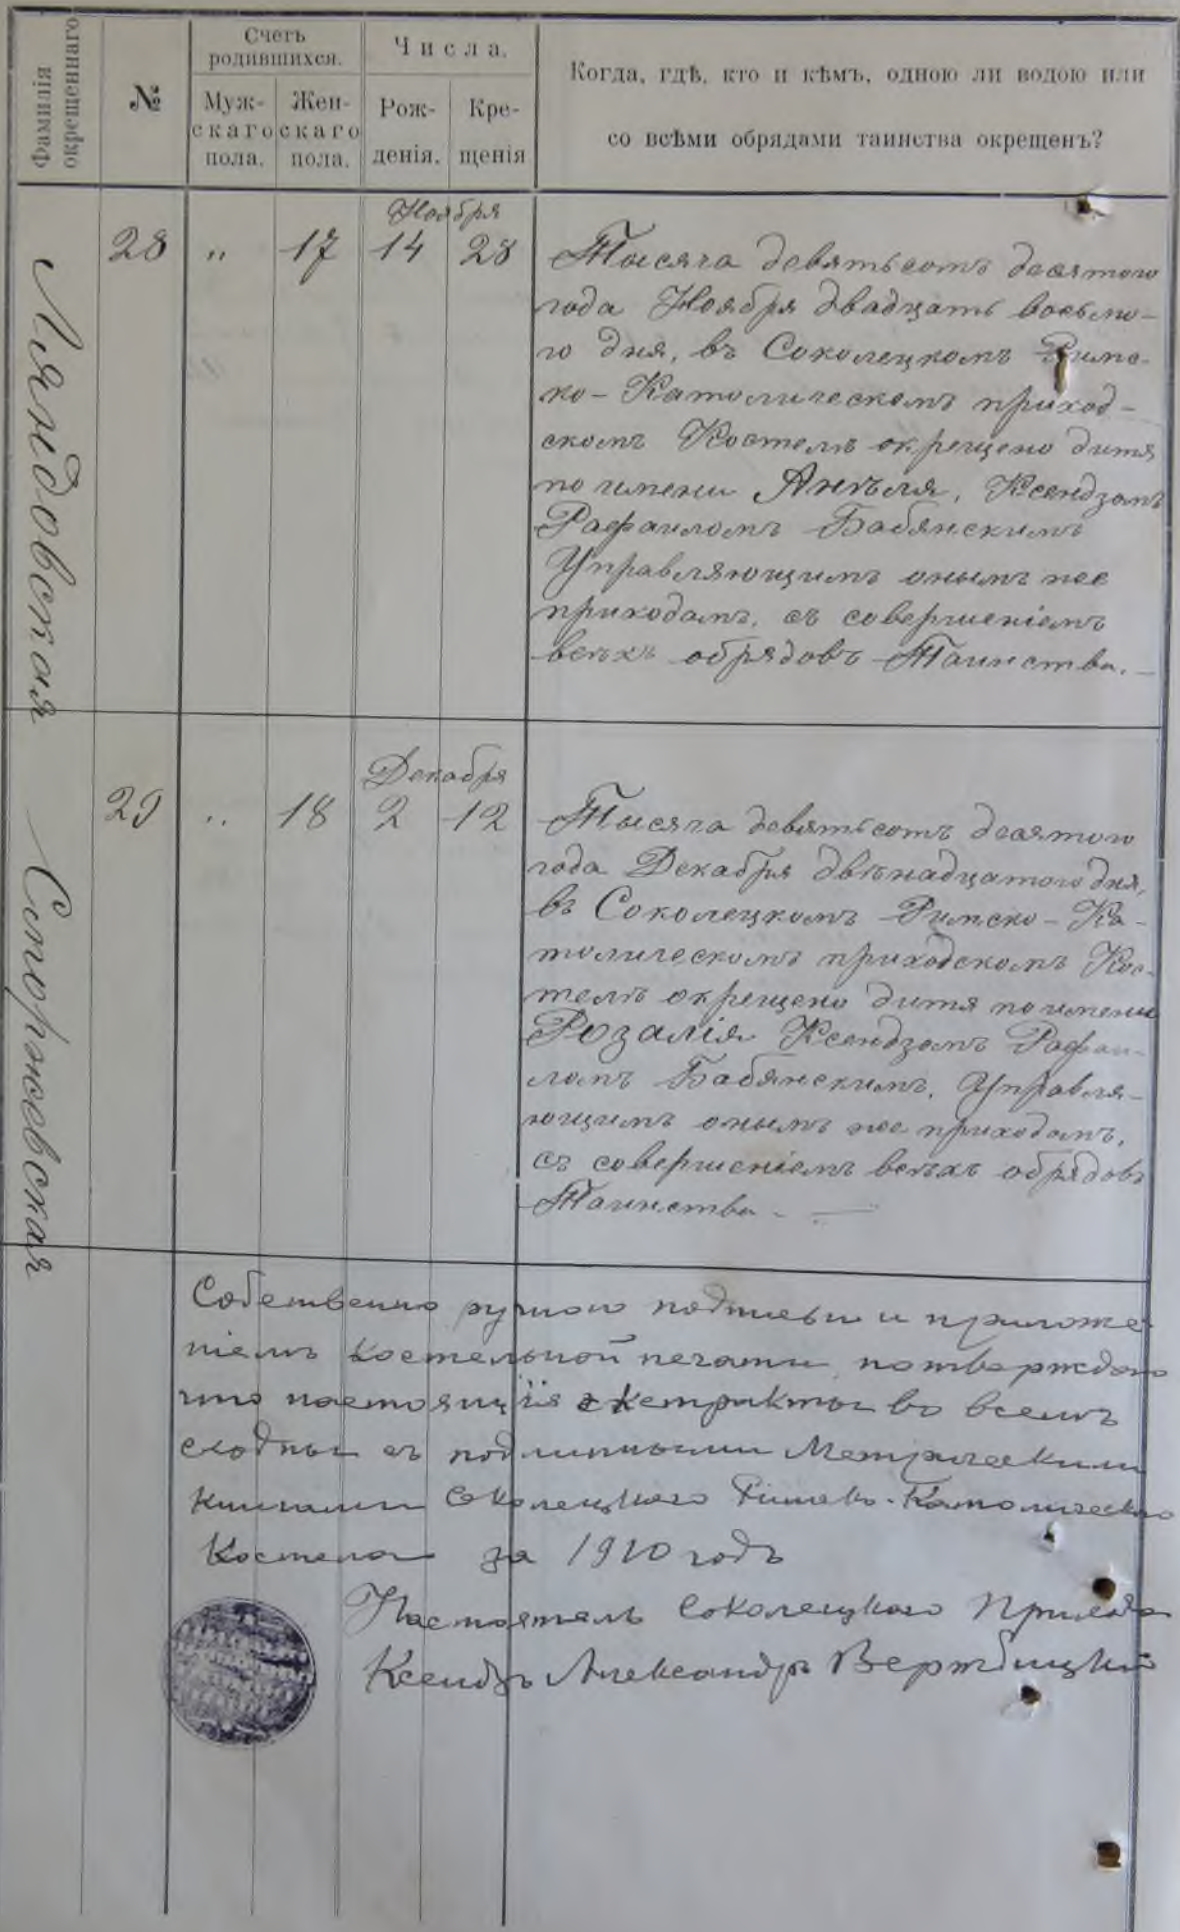 Фамилія
окрещеннаго
№
Счетъ
родившихся.
Муж-
скаго
пола.
Жен-
скаго
пола.
Числа.
Рож-
денія.
Кре-
щенія
Когда, гдѣ, кто и кѣмъ, одною ли водою или
со всѣми обрядами таинства окрещенъ?
Ляндовская
28 " 17
Ноября
14 28
Тысяча девятьсотъ десятого
года Ноября двадцать восьмо-
го дня, въ Соколецкомъ Римс-
ко-Католическомъ приход-
скомъ Костелѣ окрещено дитя
по имени Анѣля, Ксендзомъ
Рафаиломъ Бабянскимъ
Управляющимъ онымъ же
приходомъ, съ совершеніемъ
всѣхъ обрядовъ Таинства. —
Сторожовская
29 " 18
Декабря
2 12
Тысяча девятьсотъ десятого
года Декабря двѣнадцатого дня,
въ Соколецкомъ Римско-Ка-
толическомъ приходскомъ Кос-
телѣ окрещено дитя по имени
Розалія Ксендзомъ Рафаи-
ломъ Бабянскимъ, Управля-
ющимъ онымъ же приходомъ,
съ совершеніемъ всѣхъ обрядовъ
Таинства. —
Собственно ручною подписью и приложе
ніемъ костельной печати потверждаю
что настоящія экстракты во всемъ
сходны съ подлинными Метрическими
книгами Соколецкого Римско-Католического
Костела за 1910 годъ
Настоятель Соколецкого Прихода
Ксендзъ Александръ Вержбицкій